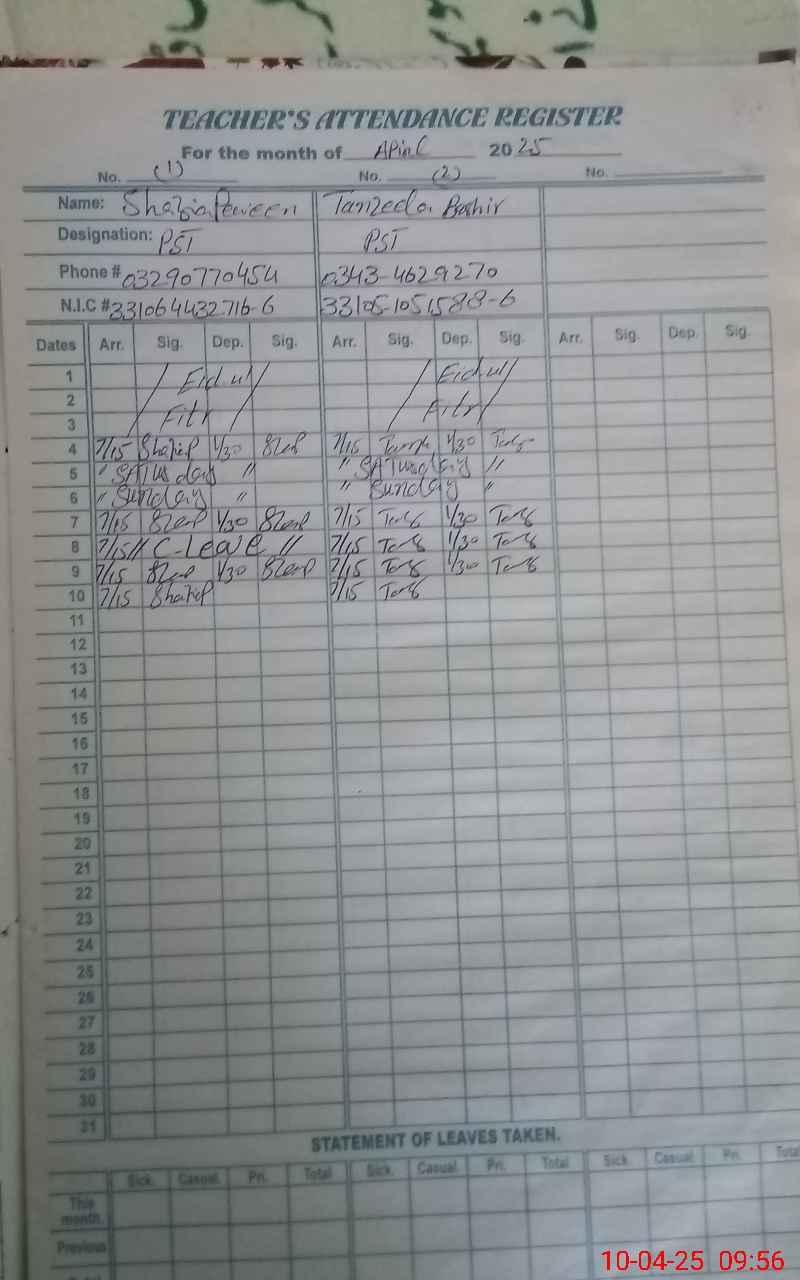 TEACHER'S ATTENDANCE REGISTER
For the month of April 2025
No. (1) No. (2) No.
Name: Shazia Perveen Tanzeela Bashir
Designation: PST PST
Phone # 03290770454 0343-4629270
N.I.C # 331064432716-6 33105-1051588-6
Dates Arr. Sig. Dep. Sig. Arr. Sig. Dep. Sig. Arr. Sig. Dep. Sig.
1 Eid ul Eid ul
2 Fitr Fitr
3
4 7/15 1/30 7/15 1/30
5 " Saturday " " Saturday "
6 " Sunday " " Sunday "
7 7/15 1/30 7/15 1/30
8 7/15 // C-Leave // 7/15 1/30
9 7/15 1/30 7/15 1/30
10 7/15 7/15
11
12
13
14
15
16
17
18
19
20
21
22
23
24
25
26
27
28
29
30
31
STATEMENT OF LEAVES TAKEN.
Sick. Casual Pri. Total Sick. Casual Pri. Total Sick. Casual Pri. Total
This month.
Previous
Total
10-04-25 09:56